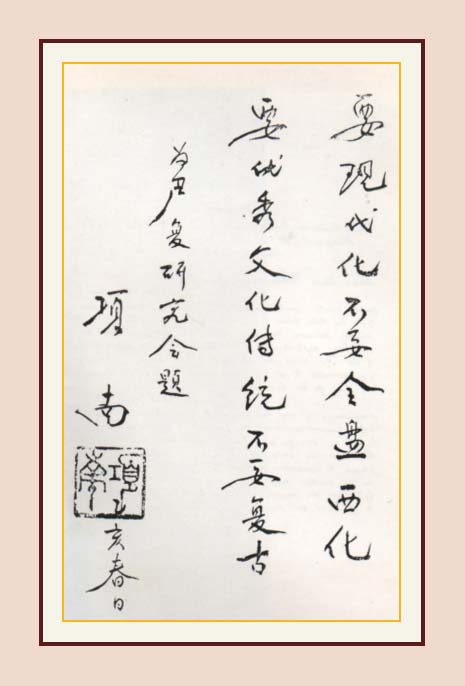 要现代化不要全盘西化
要优秀文化传统不要复古
为严复研究会题
项南
項南
乙亥春日